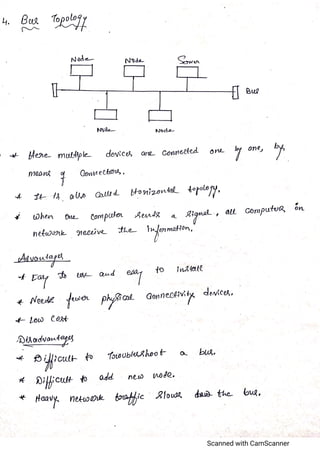 4. Bus Topology
Node Node Server
Bus
Node Node
* Here multiple devices are connected one by one, by
means of Connectors.
* It is also called Horizontal topology.
* When one computer sends a signal, all computers in
network receive the Information.
Advantages
* Easy to use and easy to install
* Needs fewer physical connectivity devices.
* Low Cost
Disadvantages
* Difficult to Troubleshoot a bus.
* Difficult to add new node.
* Heavy network traffic slows the bus.
Scanned with CamScanner